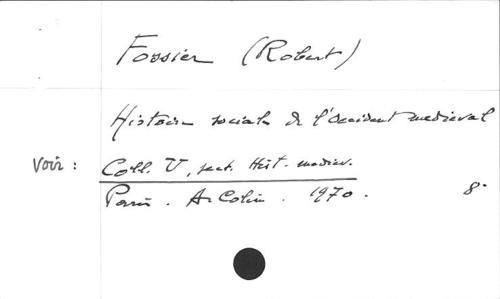 Fossier (Robert)
Histoire sociale de l'Occident medieval
Voir : Coll. U, sect. Hist. mediev.
Paris. A. Colin. 1970. 8°